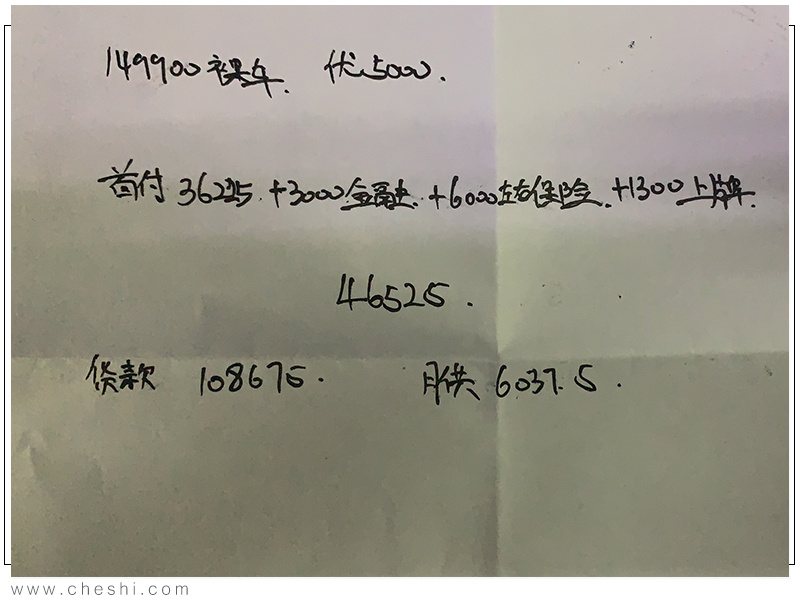 149900裸车. 优5000.
首付 36225. +3000金融. +6000左右保险. +1300上牌.
46525.
贷款 108675. 月供 6037.5.
www.cheshi.com